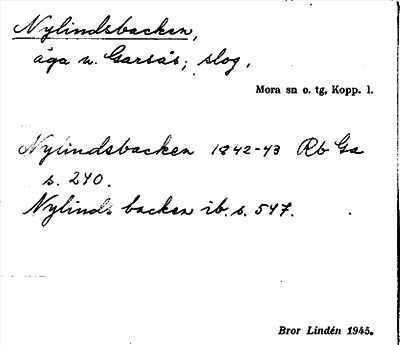 Nylindsbacken,
äga n. Garsås; slog.
Mora sn o. tg, Kopp. l.
Nylindsbacken 1842-43 Rb Ga
s. 240.
Nylinds backen ib. s. 547.
Bror Lindén 1945.